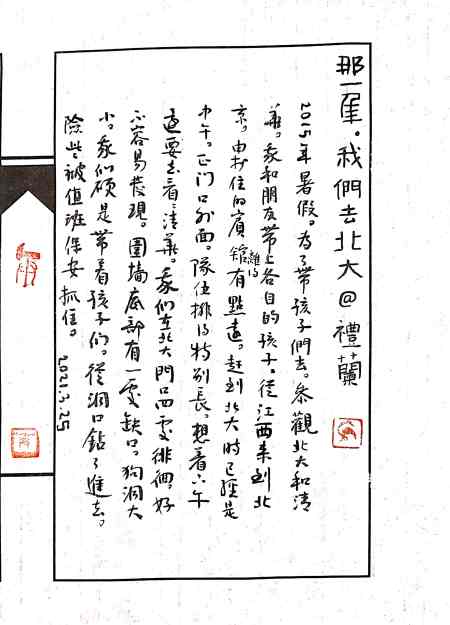 那一年。我們去北大@禮蘭
2015年暑假。为了带孩子們去。参觀北大和清
華。我和朋友带上各自的孩子。從江西来到北
京。由于住的賓館離得有點遠。赶到北大时已經是
中午。正门口外面。隊伍排得特别長。想着下午
还要去看清華。我们在北大門口四處徘徊。好
不容易發現。圍墙底部有一處缺口。狗洞大
小。我们硬是带着孩子们。從洞口鑽了進去。
險些被值班保安抓住。
2021.3.25